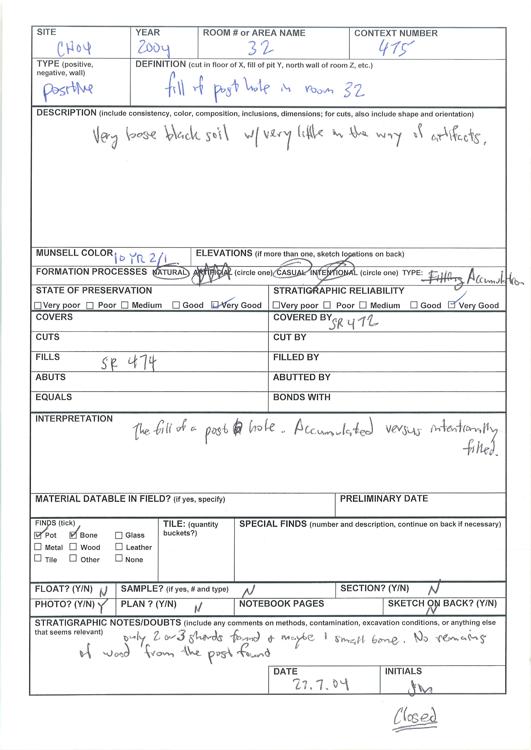 SITE YEAR ROOM # or AREA NAME CONTEXT NUMBER
CH04 2004 32 475
TYPE (positive, negative, wall) DEFINITION (cut in floor of X, fill of pit Y, north wall of room Z, etc.)
positive fill of post hole in room 32
DESCRIPTION (include consistency, color, composition, inclusions, dimensions; for cuts, also include shape and orientation)
Very loose black soil w/ very little in the way of artifacts.
MUNSELL COLOR 10 YR 2/1 ELEVATIONS (if more than one, sketch locations on back)
FORMATION PROCESSES NATURAL/ARTIFICIAL (circle one) CASUAL/INTENTIONAL (circle one) TYPE: Filling Accumulation
STATE OF PRESERVATION STRATIGRAPHIC RELIABILITY
Very poor Poor Medium Good Very Good Very poor Poor Medium Good Very Good
COVERS COVERED BY SR 472
CUTS CUT BY
FILLS SR 474 FILLED BY
ABUTS ABUTTED BY
EQUALS BONDS WITH
INTERPRETATION
The fill of a post hole. Accumulated versus intentionally
filled.
MATERIAL DATABLE IN FIELD? (if yes, specify) PRELIMINARY DATE
FINDS (tick) TILE: (quantity buckets?) SPECIAL FINDS (number and description, continue on back if necessary)
Pot Bone Glass
Metal Wood Leather
Tile Other None
FLOAT? (Y/N) N SAMPLE? (if yes, # and type) N SECTION? (Y/N) N
PHOTO? (Y/N) Y PLAN ? (Y/N) N NOTEBOOK PAGES SKETCH ON BACK? (Y/N) N
STRATIGRAPHIC NOTES/DOUBTS (include any comments on methods, contamination, excavation conditions, or anything else
that seems relevant) only 2 or 3 sherds found & maybe 1 small bone. No remains
of wood from the post found
DATE INITIALS
27.7.04
Closed